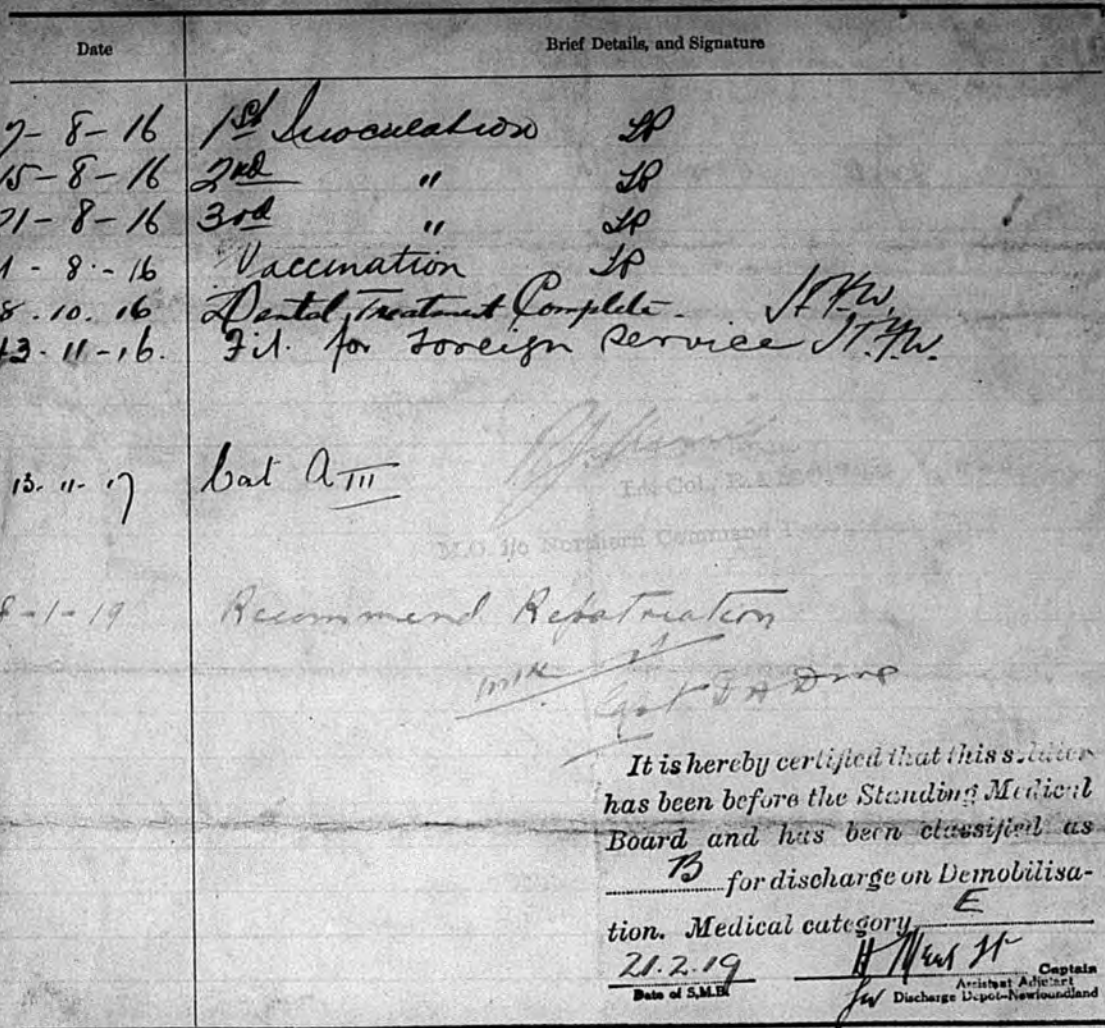 Date Brief Details, and Signature
7-8-16 1st Inoculation LP
15-8-16 2nd " LP
21-8-16 3rd " LP
1-8-16 Vaccination LP
8.10.16 Dental Treatment Complete.
13-11-16. Fit. for Foreign Service
13-11-17 Cat A III
Lt. Col.,
M.O. i/c Northern Command
8-1-19 Recommend Repatriation
Capt.
It is hereby certified that this soldier
has been before the Standing Medical
Board and has been classified as
B for discharge on Demobilisa-
tion. Medical category E
21.2.19
Captain
Date of S.M.B. Assistant Adjutant
Discharge Depot-Newfoundland